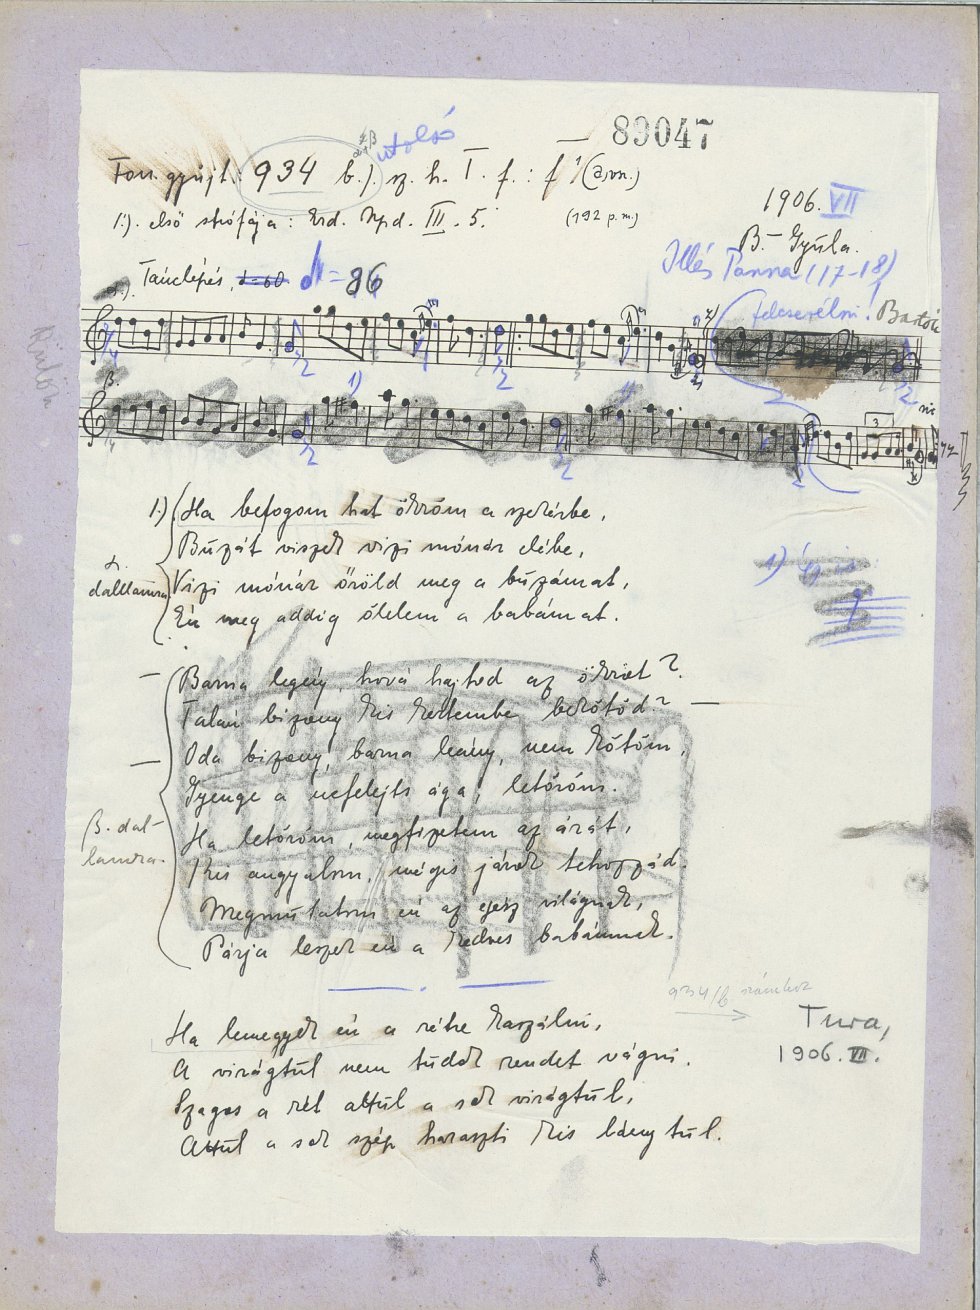 89047
utolsó
Fon. gyűjt.: 934 b.). sz. h. I. f. : f
1.). első strófája: Erd. Npd. III. 5.
(192 p.m.)
1906. VII
B.-Gyula.
Illés Panna (17-18)
felcserélni! Bartók
Tánclépés, ♩=60 ♩= 86
β.
1)
3
1.) Ha befogom hat ökröm a szekérbe,
Búzát viszek vizi mónár elébe,
α. dallamra
Vizi mónár őröld meg a búzámat,
Én meg addig ölelem a babámat.
Barna legény, hová hajtod az ökröt?
Talán bizony kis kertembe bekötöd?
Oda bizony, barna leány, nem kötöm,
Gyenge a nefelejts ága, letöröm.
β. dal-
lamra.
Ha letöröm, megfizetem az árát,
Kis angyalom, mégis járok tehozzád.
Megmutatom én az egész világnak,
Párja leszek én a kedves babámnak.
934/b számhoz
Tura,
1906. VII.
Ha lemegyek én a rétre kaszálni,
A virágtúl nem tudok rendet vágni.
Szagos a rét attúl a sok virágtúl,
Attúl a sok szép haraszti kis lánytúl.